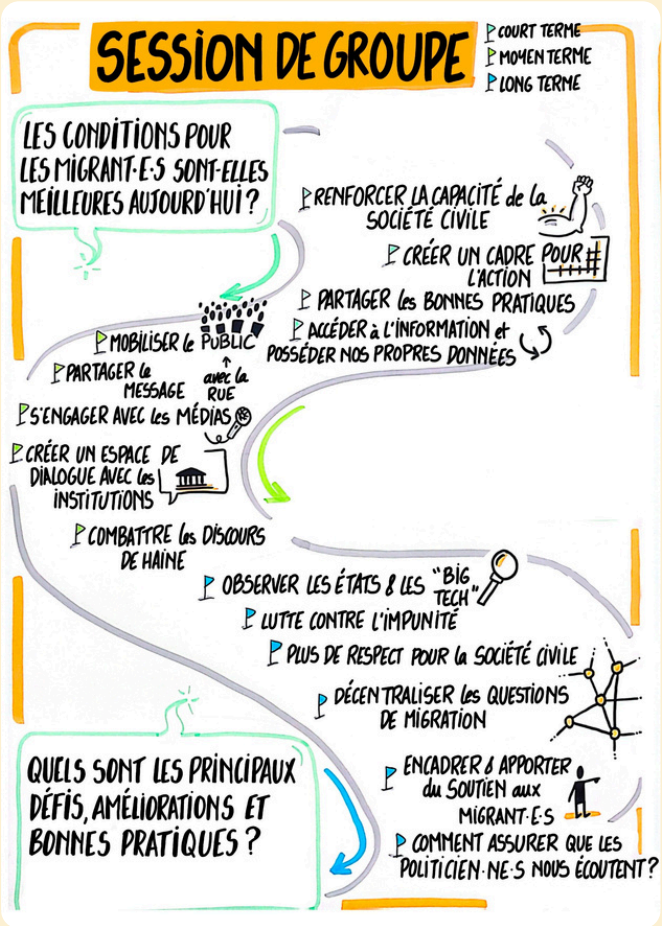 SESSION DE GROUPE
COURT TERME
MOYEN TERME
LONG TERME
LES CONDITIONS POUR
LES MIGRANT·E·S SONT-ELLES
MEILLEURES AUJOURD'HUI ?
RENFORCER LA CAPACITÉ de la
SOCIÉTÉ CIVILE
CRÉER UN CADRE POUR
L'ACTION
PARTAGER les BONNES PRATIQUES
ACCÉDER à L'INFORMATION et
POSSÉDER NOS PROPRES DONNÉES
MOBILISER le PUBLIC
avec la
RUE
PARTAGER le
MESSAGE
S'ENGAGER AVEC les MÉDIAS
CRÉER UN ESPACE DE
DIALOGUE AVEC les
INSTITUTIONS
COMBATTRE les DISCOURS
DE HAINE
OBSERVER LES ÉTATS & LES "BIG
TECH"
LUTTE CONTRE L'IMPUNITÉ
PLUS DE RESPECT POUR la SOCIÉTÉ CIVILE
DÉCENTRALISER les QUESTIONS
DE MIGRATION
ENCADRER & APPORTER
du SOUTIEN aux
MIGRANT·E·S
COMMENT ASSURER QUE LES
POLITICIEN·NE·S NOUS ÉCOUTENT ?
QUELS SONT LES PRINCIPAUX
DÉFIS, AMÉLIORATIONS ET
BONNES PRATIQUES ?